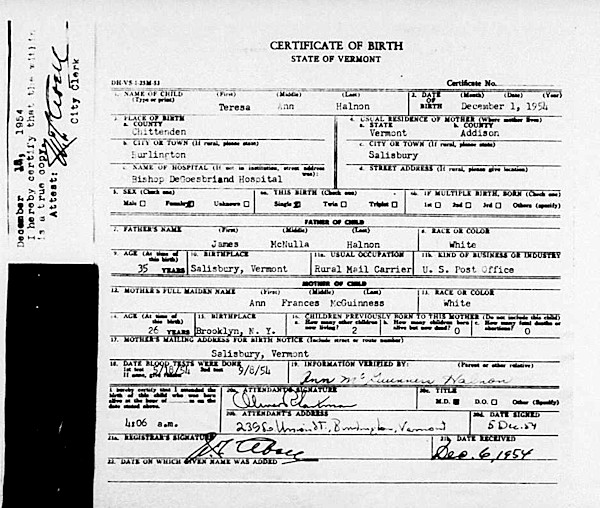 CERTIFICATE OF BIRTH
STATE OF VERMONT
DH-VS-1-25M-53
Certificate No.
1. NAME OF CHILD (First) (Middle) (Last)
(Type or print)
Teresa Ann Halnon
2. DATE OF BIRTH (Month) (Day) (Year)
December 1, 1954
3. PLACE OF BIRTH
a. COUNTY
Chittenden
4. USUAL RESIDENCE OF MOTHER (Where mother lives)
a. STATE b. COUNTY
Vermont Addison
b. CITY OR TOWN (If rural, please state)
Burlington
c. CITY OR TOWN (If rural, please state)
Salisbury
c. NAME OF HOSPITAL (If not in institution, street address was):
Bishop DeGoesbriand Hospital
d. STREET ADDRESS (If rural, please give location)
5. SEX (Check one)
Male Female Unknown
6a. THIS BIRTH (Check one)
Single Twin Triplet
6b. IF MULTIPLE BIRTH, BORN (Check one)
1st 2nd 3rd Others (specify)
FATHER OF CHILD
7. FATHER'S NAME (First) (Middle) (Last)
James McNulla Halnon
8. RACE OR COLOR
White
9. AGE (At time of this birth)
35 YEARS
10. BIRTHPLACE
Salisbury, Vermont
11a. USUAL OCCUPATION
Rural Mail Carrier
11b. KIND OF BUSINESS OR INDUSTRY
U. S. Post Office
MOTHER OF CHILD
12. MOTHER'S FULL MAIDEN NAME (First) (Middle) (Last)
Ann Frances McGuinness
13. RACE OR COLOR
White
14. AGE (At time of this birth)
26 YEARS
15. BIRTHPLACE
Brooklyn, N. Y.
16. CHILDREN PREVIOUSLY BORN TO THIS MOTHER (Do not include this child)
a. How many other children now living? 2
b. How many children born alive but now dead? 0
c. How many fetal deaths or abortions? 0
17. MOTHER'S MAILING ADDRESS FOR BIRTH NOTICE (Include street or route number)
Salisbury, Vermont
18. DATE BLOOD TESTS WERE DONE
1st test 5/18/54 2nd test 9/8/54
If none, give reason
19. INFORMATION VERIFIED BY: (Parent or other relative)
Ann McGuinness Halnon
I hereby certify that I attended the birth of this child who was born alive at the hour of ... on the date stated above.
4:06 a.m.
20a. ATTENDANT'S SIGNATURE
20c. TITLE
M.D. D.O. Other (Specify)
20b. ATTENDANT'S ADDRESS
Burlington, Vermont
20d. DATE SIGNED
5 Dec. 54
21a. REGISTRAR'S SIGNATURE
21b. DATE RECEIVED
Dec. 6, 1954
22. DATE ON WHICH GIVEN NAME WAS ADDED
December 1954
I hereby certify that the within
is a true copy
Attest:
City Clerk